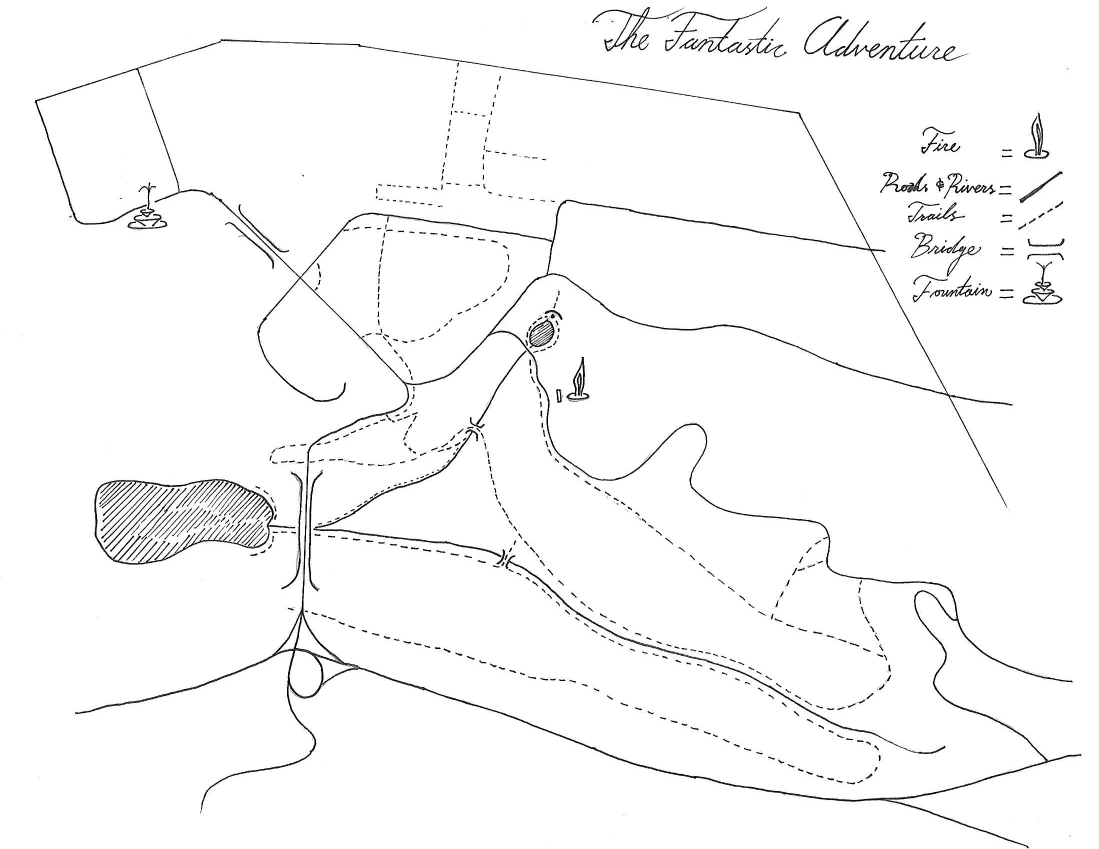 The Fantastic Adventure
Fire =
Roads & Rivers =
Trails =
Bridge =
Fountain =